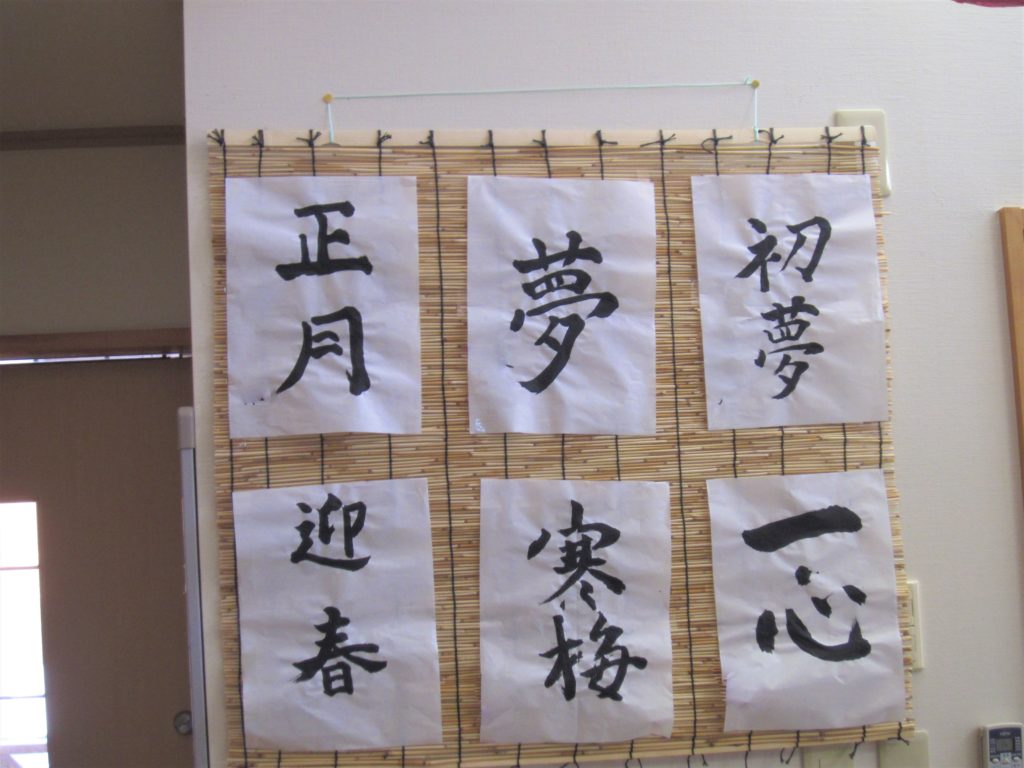 正月
夢
初夢
迎春
寒梅
一心